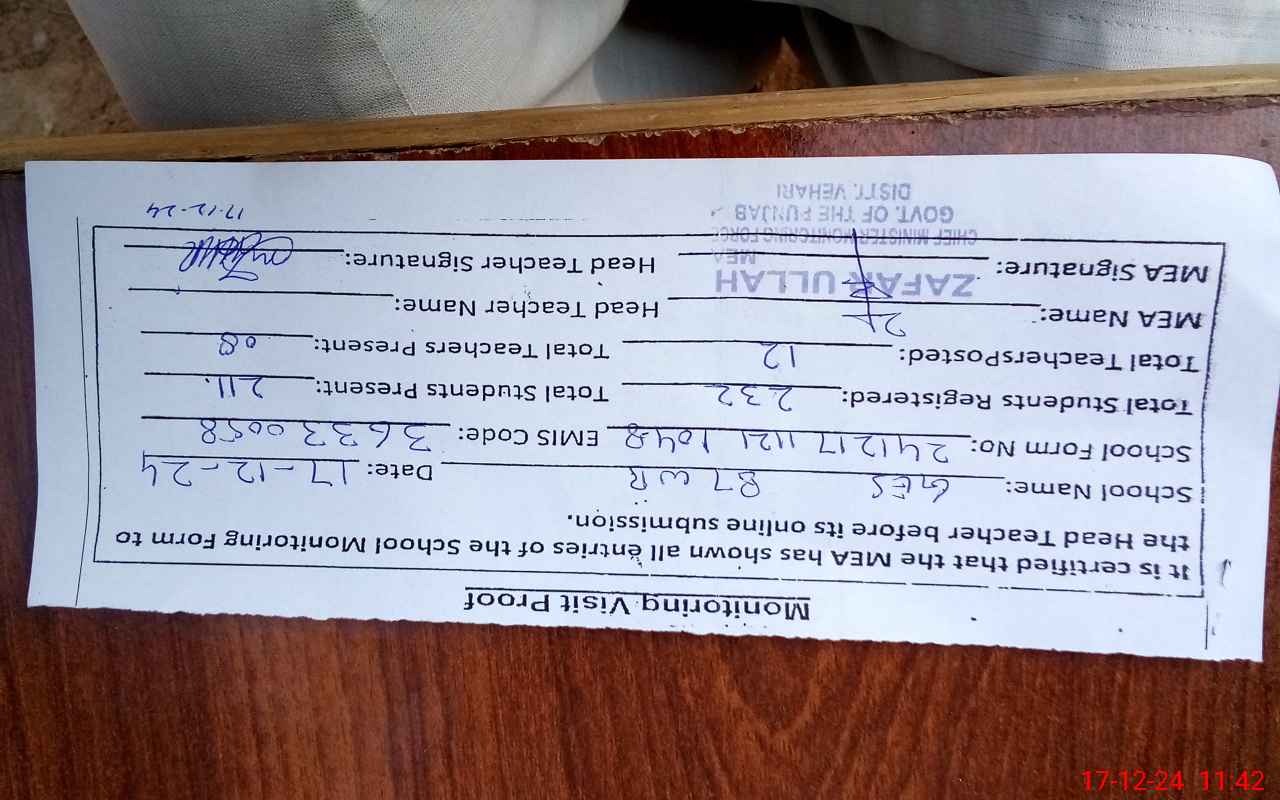 Monitoring Visit Proof
It is certified that the MEA has shown all entries of the School Monitoring Form to
the Head Teacher before its online submission.
School Name: GES 87 WB Date: 17-12-24
School Form No: 241217 1121 1048 EMIS Code: 36330058
Total Students Registered: 232 Total Students Present: 211.
Total TeachersPosted: 12 Total Teachers Present: 08
MEA Name: Head Teacher Name:
MEA Signature: Head Teacher Signature:
ZAFAR ULLAH
MEA
CHIEF MINISTER MONITORING FORCE
GOVT. OF THE PUNJAB
DISTT. VEHARI
17-12-24
17-12-24 11:42